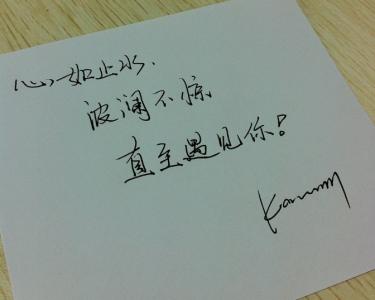 心如止水.
波澜不惊,
直至遇见你!